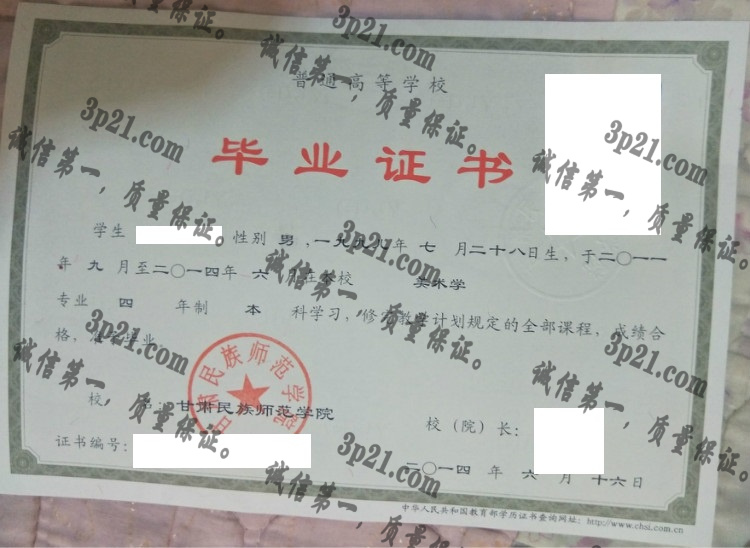 普通高等学校
毕业证书
学生 性别 男,一九九八年 七 月二十八日生,于二〇一一
年 九 月至二〇一四年 六 月在本校 美术学
专业 四 年制 本 科学习,修完教学计划规定的全部课程,成绩合
格,准予毕业。
校 名:甘肃民族师范学院
校(院)长:
证书编号:
二〇一四 年 六 月 十六日
中华人民共和国教育部学历证书查询网址:http://www.chsi.com.cn
甘肃民族师范学院
3p21.com
诚信第一,质量保证。
3p21.com
诚信第一,质量保证。
3p21.com
诚信第一,质量保证。
3p21.com
诚信第一,质量保证。
3p21.com
诚信第一,质量保证。
3p21.com
诚信第一,质量保证。
3p21.com
诚信第一,质量保证。
3p21.com
诚信第一,质量保证。